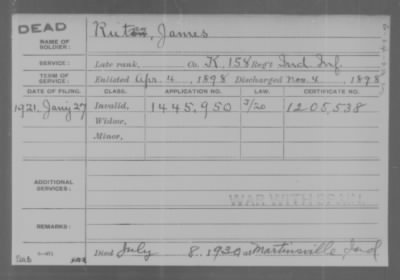 DEAD
NAME OF SOLDIER: James
SERVICE: Late rank, Co. K, 158 Reg't Ind Inf.
TERM OF SERVICE: Enlisted Apr. 4, 1898 Discharged Nov. 4, 1898
DATE OF FILING. CLASS. APPLICATION NO. LAW. CERTIFICATE NO.
1921, Jan'y 27 Invalid, 1445,950 3/20 1205,538
Widow,
Minor,
ADDITIONAL SERVICES:
WAR WITH SPAIN
REMARKS:
Died July 8, 1930 at Martinsville Ind